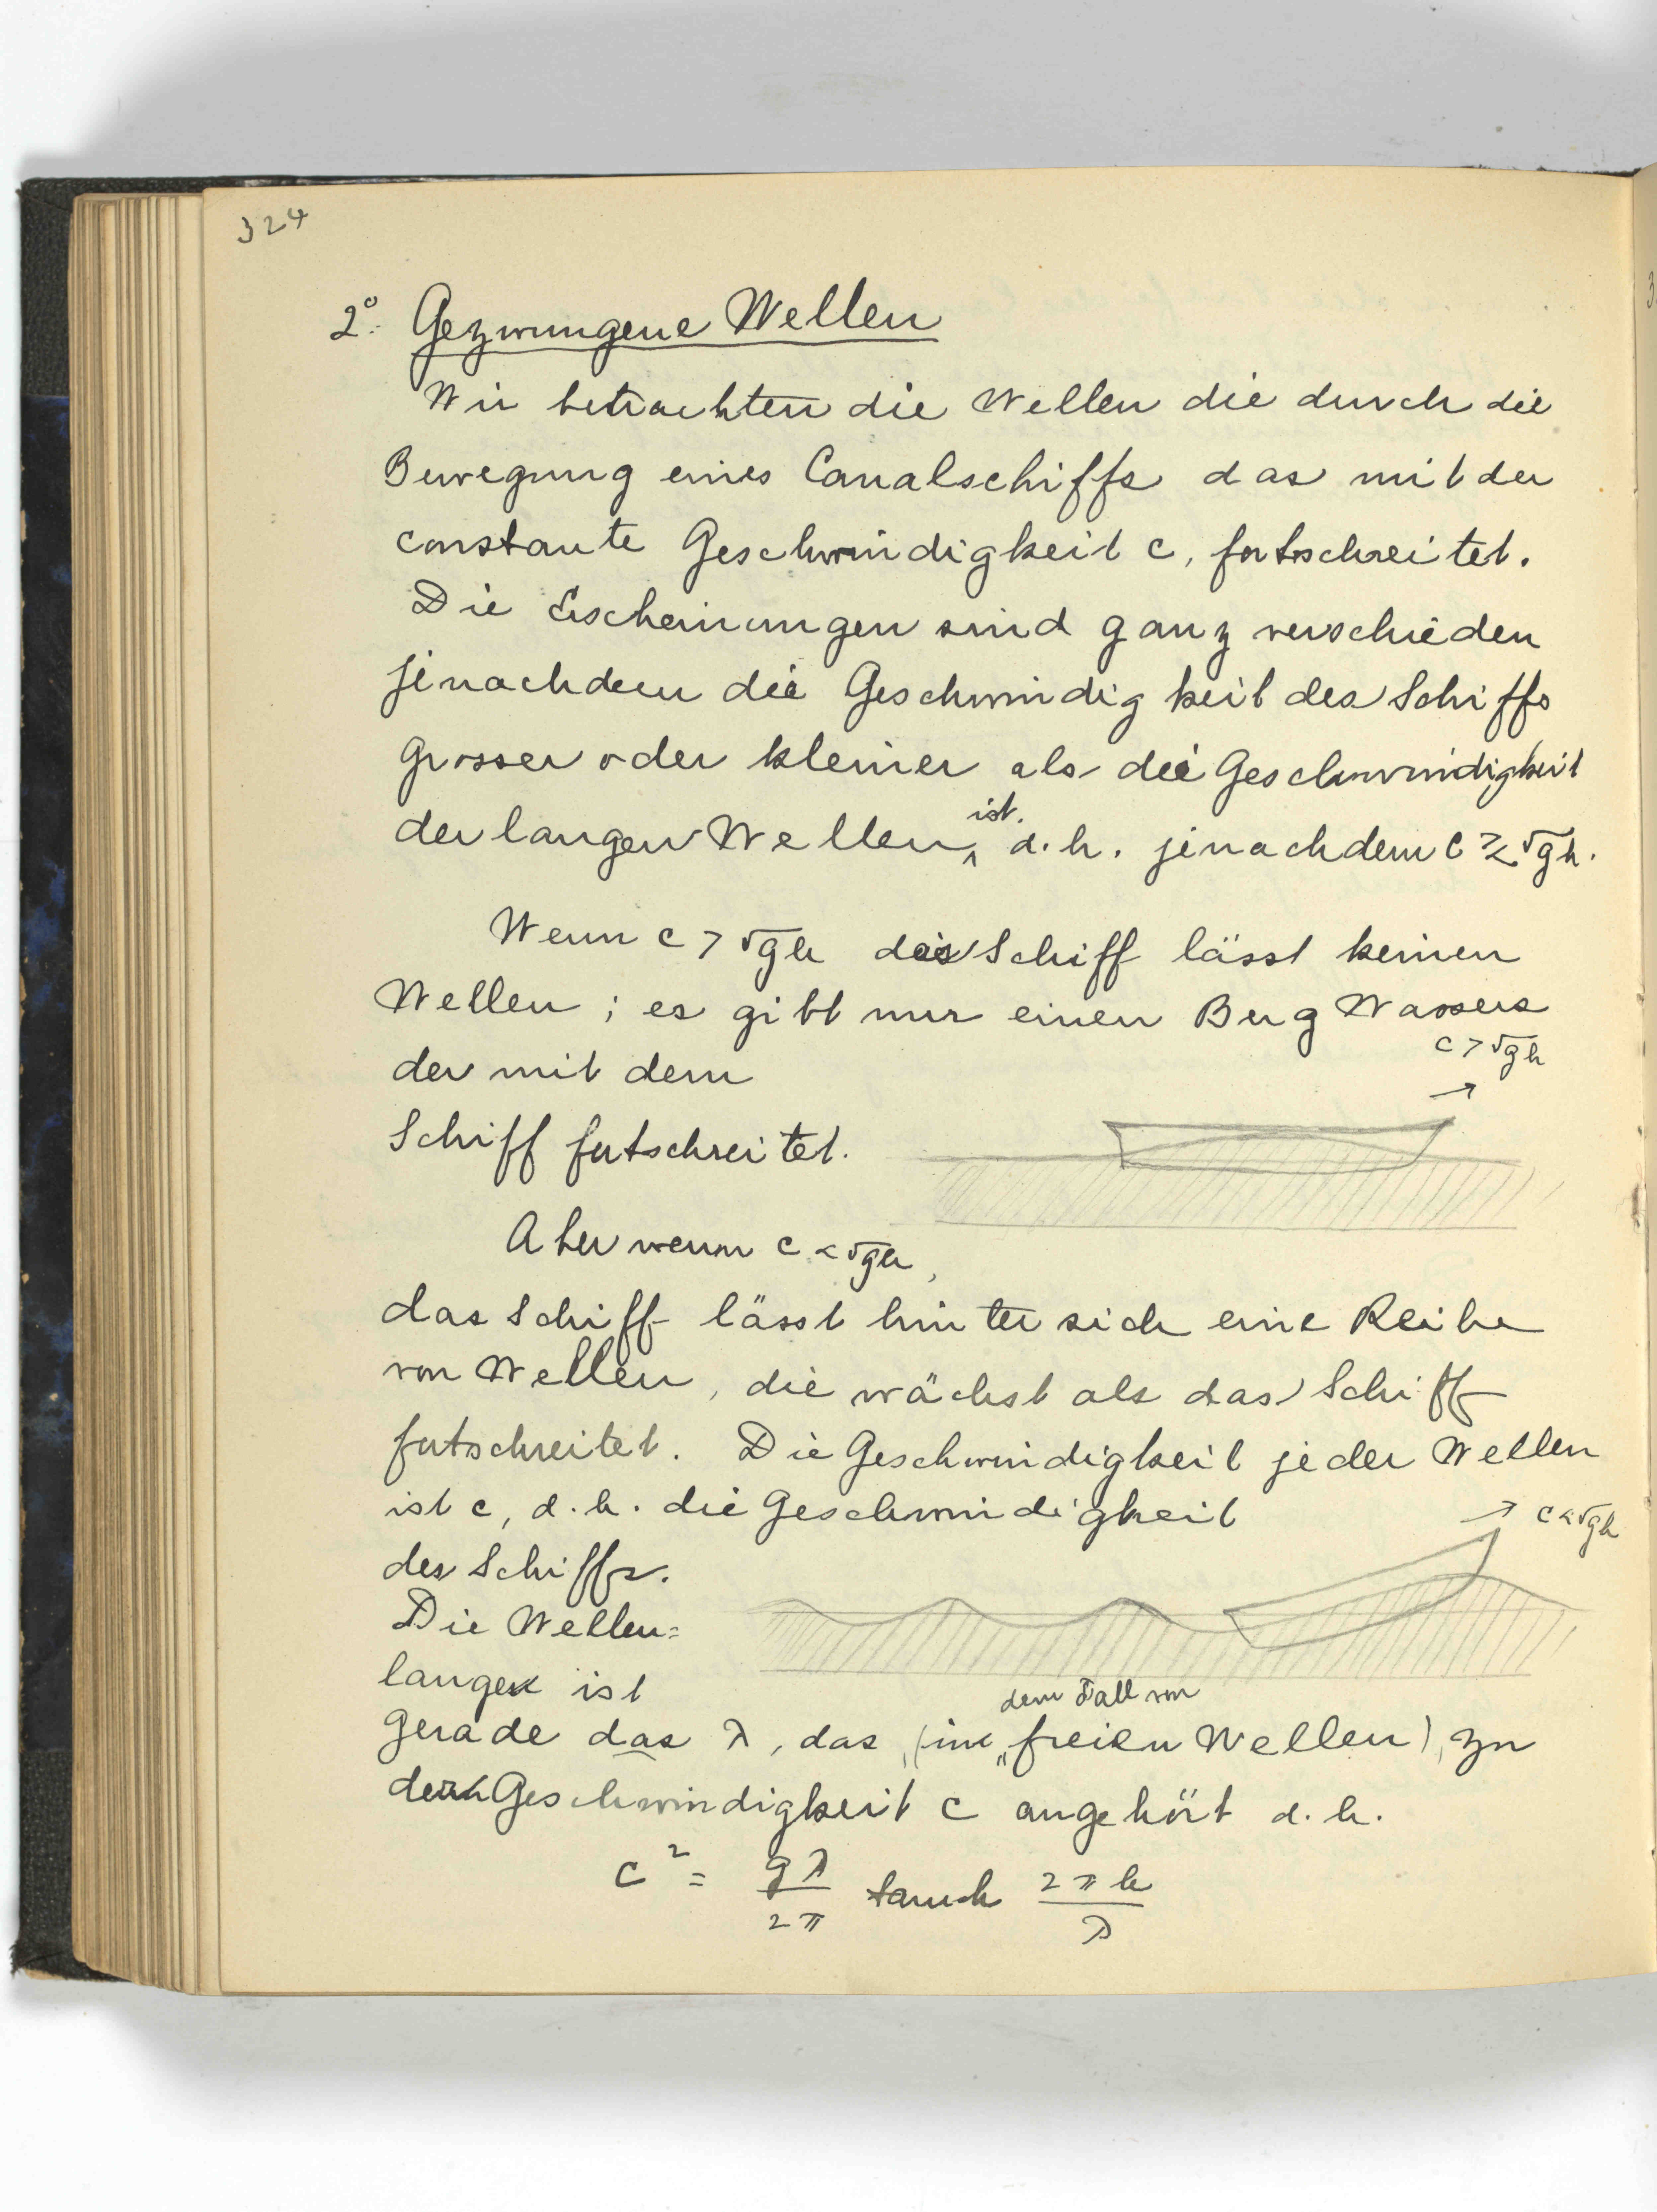 324
2º. Gezwungene Wellen
Wir betrachten die Wellen die durch die
Bewegung eines Canalschiffs das mit der
constante Geschwindigkeit c, fortschreitet.
Die Erscheinungen sind ganz verschieden
jenachdem die Geschwindigkeit des Schiffs
grosser oder kleiner als die Geschwindigkeit
der langen Wellen ist. d.h. jenachdem c ≷ √gh.
Wenn c > √gh das Schiff lässt keinen
Wellen; es gibt nur einen Berg Wassers
der mit dem
c > √gh
Schiff fortschreitet.
Aber wenn c < √gh,
das Schiff lässt hinter sich eine Reihe
von Wellen, die wächst als das Schiff
fortschreitet. Die Geschwindigkeit jeder Wellen
ist c, d.h. die Geschwindigkeit
c < √gh
des Schiffs.
Die Wellen=
lange ist
gerade das λ, das, (im dem Fall von freien Wellen), zu
der Geschwindigkeit c angehört d.h.
c² = gλ/2π tanh 2πh/λ